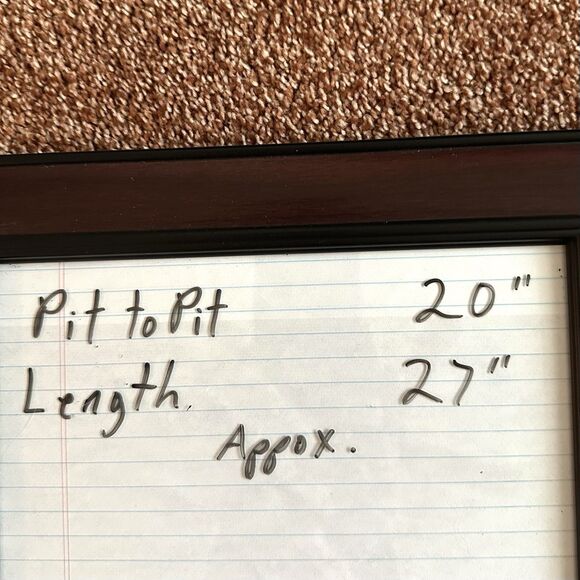 Pit to Pit 20"
Length. 27"
Appox.